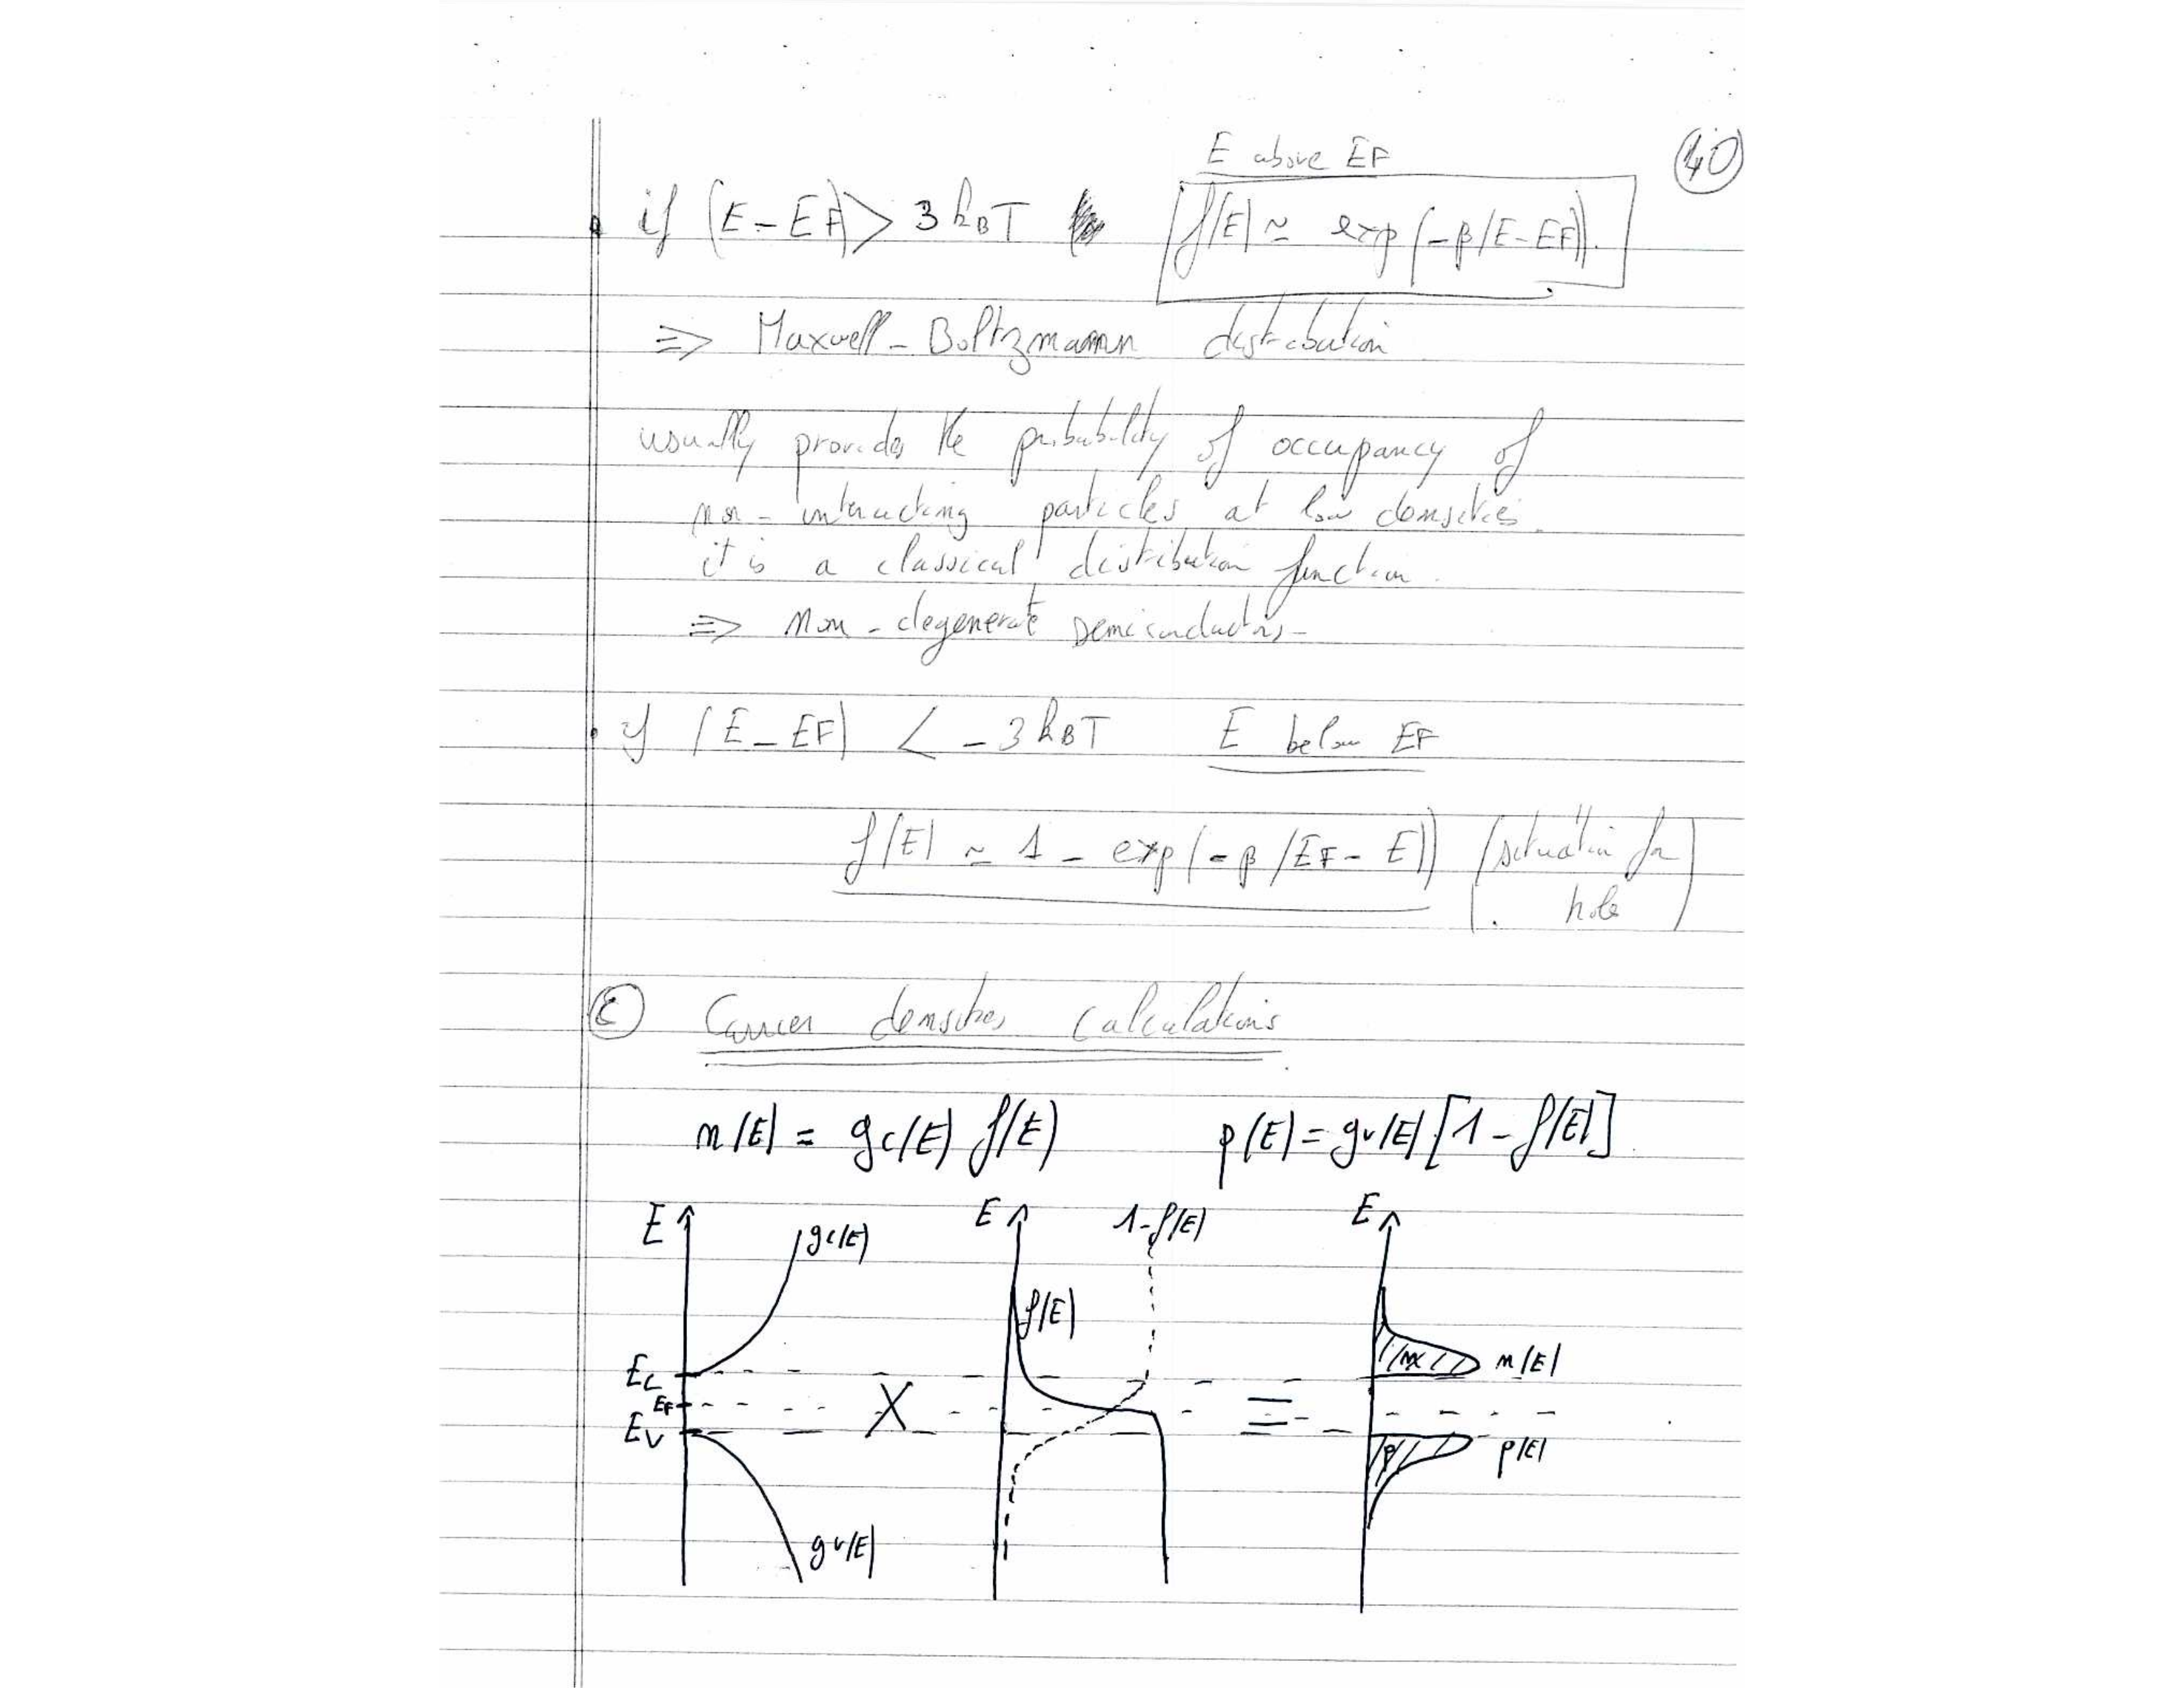 40
E above EF
• if (E - EF) > 3 kBT f(E) ≃ exp(-β(E-EF)).
=> Maxwell - Boltzmann distribution
usually provides the probability of occupancy of
non - interacting particles at low densities.
it is a classical distribution function.
=> Non - degenerate semiconductors -
• if (E - EF) < - 3 kBT E below EF
f(E) ≃ 1 - exp(-β(EF - E)) (situation for
hole)
Carrier densities calculations
n(E) = gc(E) f(E) p(E) = gv(E) [1 - f(E)].
E gc(E) E 1-f(E) E
f(E)
Ec n(E)
EF X =
Ev p p(E)
gv(E)